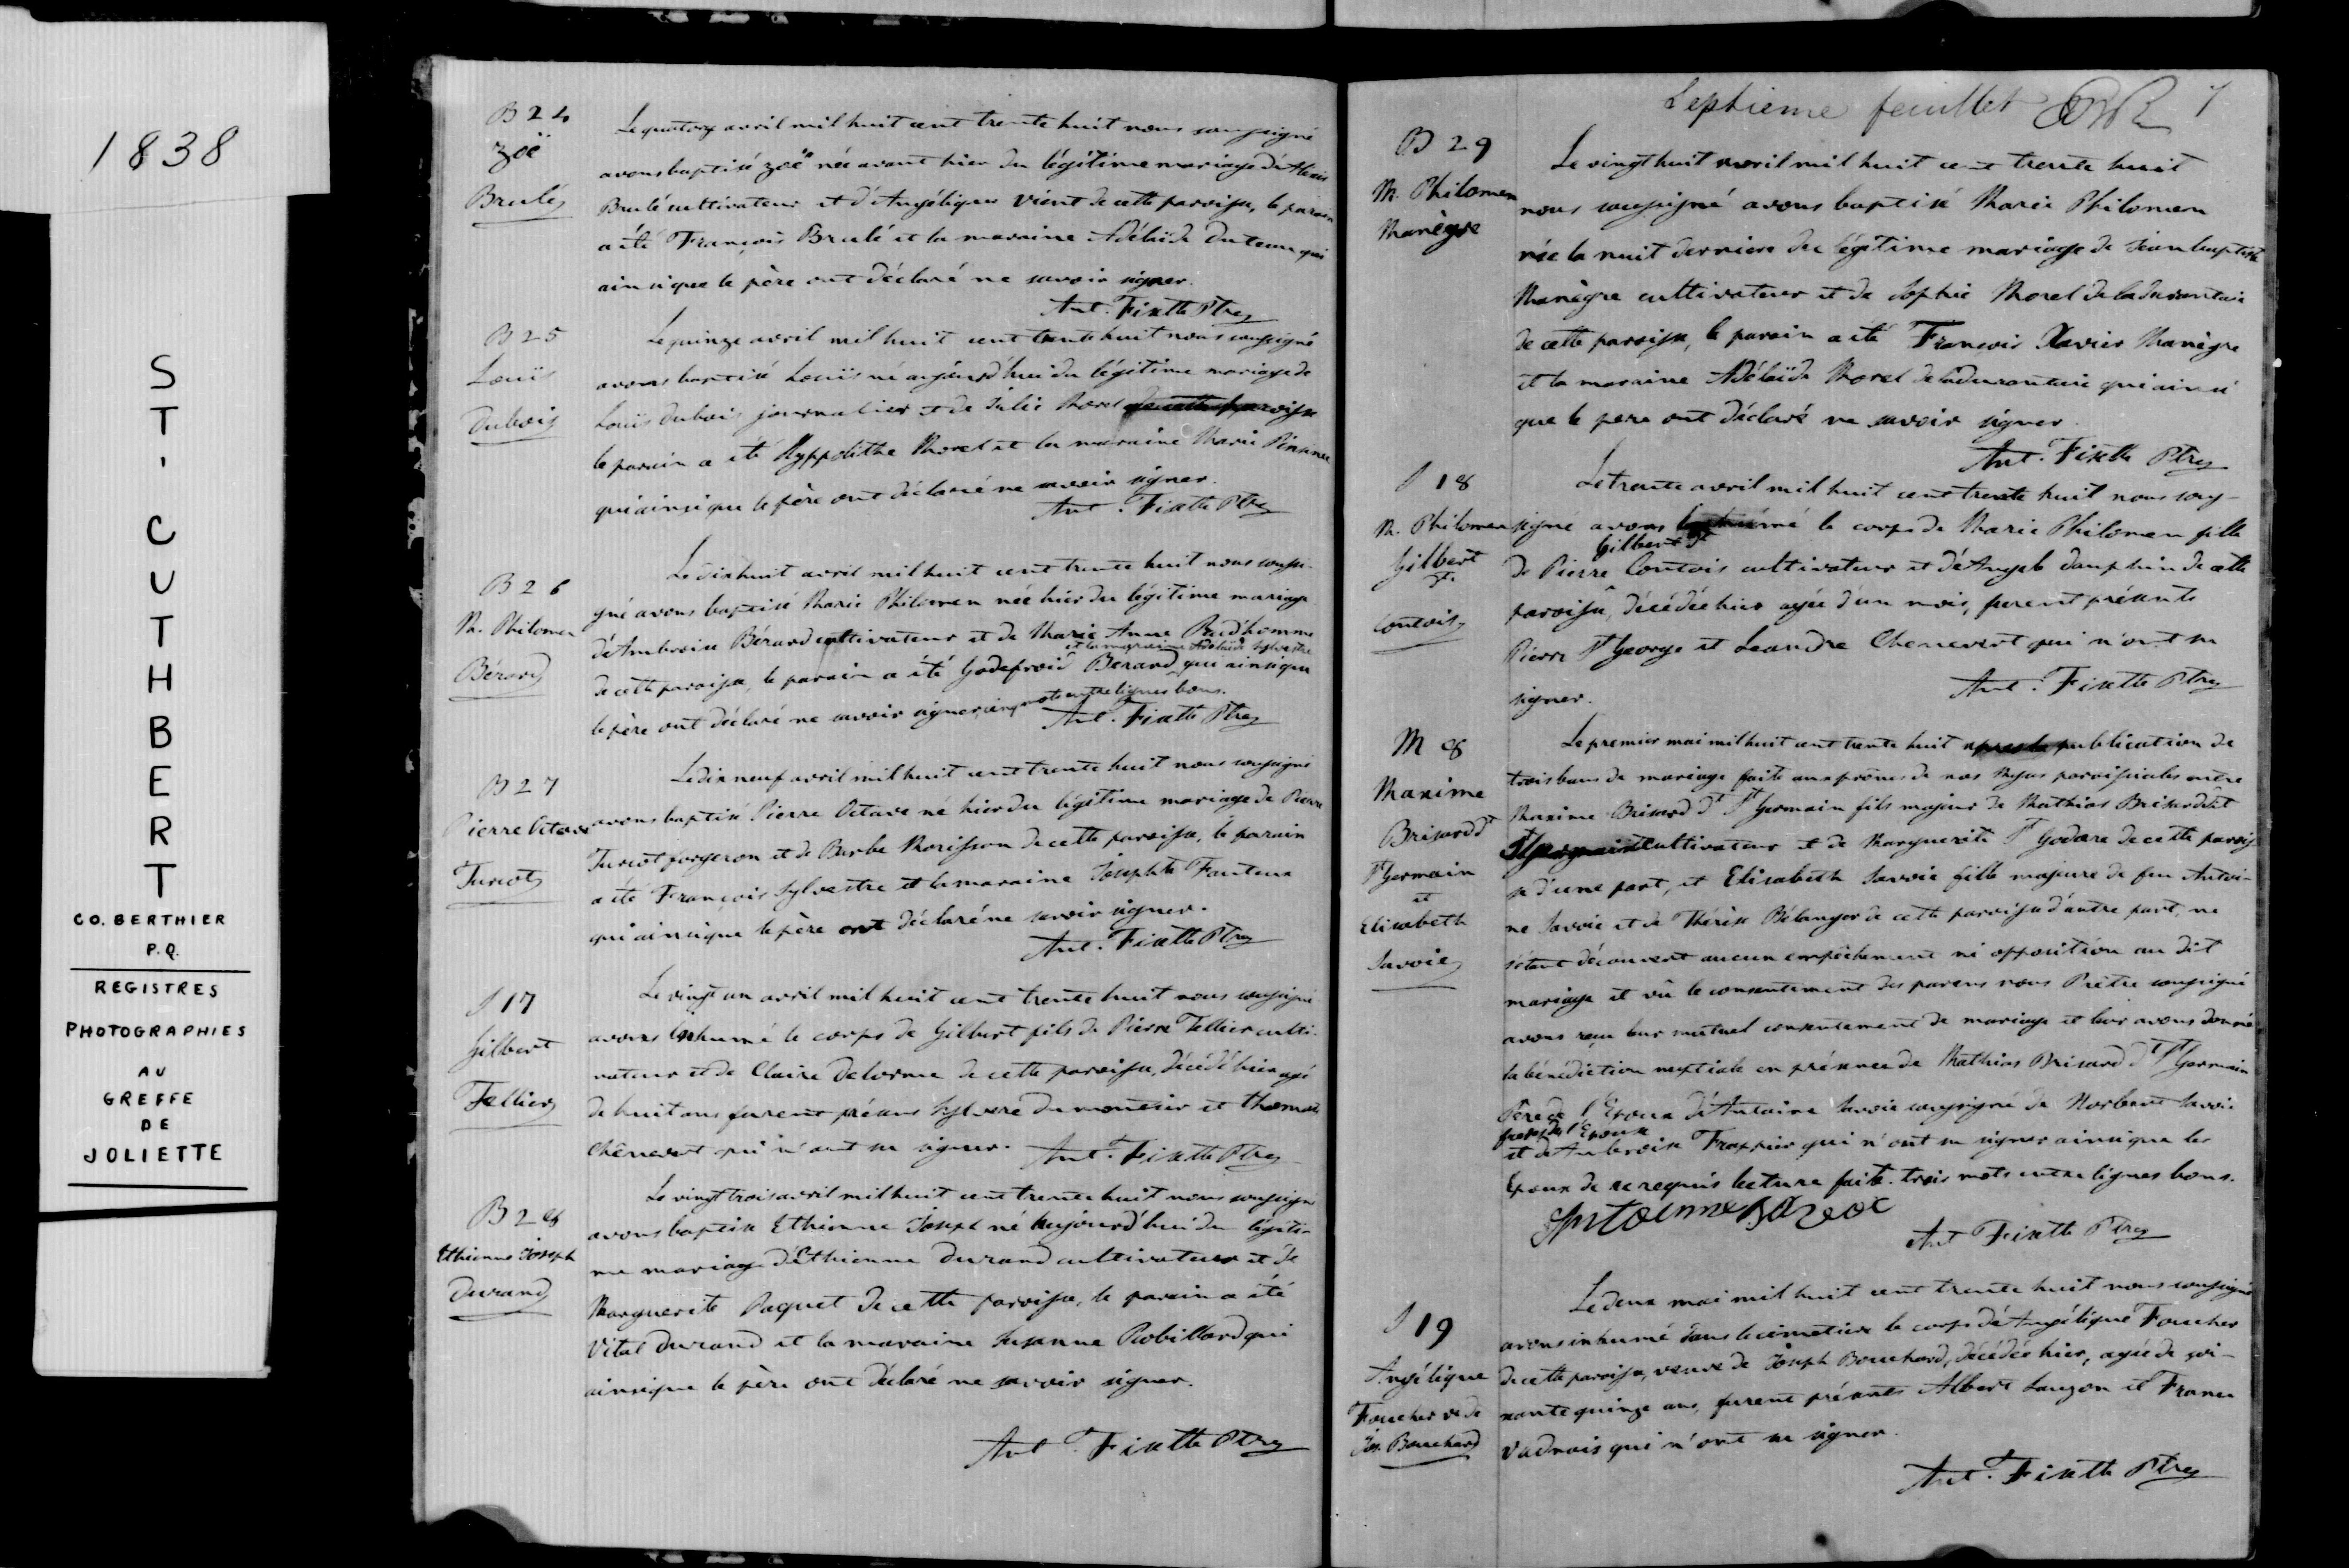 1838
ST' CUTHBERT
CO. BERTHIER
P.Q.
REGISTRES
PHOTOGRAPHIES
AU
GREFFE
DE
JOLIETTE
B 24
Zoë
Brulé
Le quatorze avril mil huit cent trente huit nous soussigné
avons baptisé Zoë née avant hier du légitime mariage d'Alexis
Brulé cultivateur et d'Angélique Vient de cette paroisse, le parain
a été François Brulé et la maraine Adélaïde Duteau qui
ainsi que le père ont déclaré ne savoir signer.
Ant. Fisette Ptre
B 25
Louis
Dubois
Le quinze avril mil huit cent trente huit nous soussigné
avons baptisé Louis né aujourd'hui du légitime mariage de
Louis Dubois journalier et de Julie Morel de cette paroisse
le parain a été Hyppolithe Morel et la maraine Marie
qui ainsi que le père ont déclaré ne savoir signer.
Ant. Fisette Ptre
B 26
M. Philomen
Bérard
Le dix huit avril mil huit cent trente huit nous soussi-
gné avons baptisé Marie Philomen née hier du légitime mariage
d'Ambroise Bérard cultivateur et de Marie Anne Prudhomme
et la maraine Adélaïde Sylvestre
de cette paroisse, le parain a été Godefroid Berard qui ainsi que
le père ont déclaré ne savoir signer, cinq mots entre lignes bons.
Ant. Fisette Ptre
B 27
Pierre Octave
Turcot
Le dix neuf avril mil huit cent trente huit nous soussigné
avons baptisé Pierre Octave né hier du légitime mariage de Pierre
Turcot forgeron et de Barbe Morisson de cette paroisse, le parain
a été François Sylvestre et la maraine Josephte Fauteux
qui ainsi que le père ont déclaré ne savoir signer.
Ant. Fisette Ptre
S 17
Gilbert
Tellier
Le vingt un avril mil huit cent trente huit nous soussigné
avons inhumé le corps de Gilbert fils de Pierre Tellier culti-
vateur et de Claire Delorme de cette paroisse, décédé hier agé
de huit ans furent présens Sylvere Dumontier et Thomas
Chênevert qui n'ont su signer. Ant. Fisette Ptre
B 28
Ethienne Joseph
Durand
Le vingt trois avril mil huit cent trente huit nous soussigné
avons baptisé Ethienne Joseph né aujourd'hui du légiti-
me mariage d'Ethienne Durand cultivateur et de
Marguerite Paquet de cette paroisse, le parain a été
Vital Durand et la maraine Susanne Robillard qui
ainsi que le père ont déclaré ne savoir signer.
Ant. Fisette Ptre
Septieme feuillet 7
B 29
M. Philomen
Manègre
Le vingt huit avril mil huit cent trente huit
nous soussigné avons baptisé Marie Philomen
née la nuit derniere du légitime mariage de Jean baptiste
Manègre cultivateur et de Sophie Morel de ladurantaie
de cette paroisse, le parain a été François Xavier Manègre
et la maraine Adélaïde Morel de ladurantaie qui ainsi
que le pere ont déclaré ne savoir signer.
Ant. Fisette Ptre
S 18
M. Philomen
Gilbert
dt
Contois
Le trente avril mil huit cent trente huit nous sous-
signé avons inhumé le corps de Marie Philomen fille
Gilbert dt
de Pierre Contois cultivateur et d'Angele Dauphin de cette
paroisse, décédée hier agée d'un mois, furent présents
Pierre St George et Leandre Chenevert qui n'ont su
signer.
Ant. Fisette Ptre
M 8
Maxime
Brisard dt
St Germain
et
Elisabeth
Savoie
Le premier mai mil huit cent trente huit après la publication de
trois bans de mariage faite aux prônes de nos Messes paroissiales entre
Maxime Brisard dt St Germain fils majeur de Mathias Brisard dit
St Germain cultivateur et de Marguerite St Godare de cette parois-
se d'une part, et Elisabeth Savoie fille majeure de feu Antoi-
ne Savoie et de Thérèse Bélanger de cette paroisse d'autre part, ne
s'étant découvert aucun empêchement ni opposition au dit
mariage et vû le consentement des parens nous Prêtre soussigné
avons reçu leur mutuel consentement de mariage et leur avons donné
la bénédiction nuptiale en présence de Mathias Brisard dt St Germain
Père de l'Epoux d'Antoine Savoie soussigné de Norbert Savoie
freres de l'Epouse
et d'Ambroise Frappier qui n'ont su signer ainsi que les
Epoux de ce requis lecture faite. trois mots entre lignes bons.
Antoinne Savoie
Ant Fisette Ptre
S 19
Angélique
Foucher ve de
Jos. Bouchard
Le deux mai mil huit cent trente huit nous soussigné
avons inhumé dans le cimetiere le corps d'Angélique Foucher
de cette paroisse, veuve de Joseph Bouchard, décédée hier, agée de soi-
xante quinze ans, furent présents Albert Lauzon et Franc
Vadnais qui n'ont su signer.
Ant. Fisette Ptre